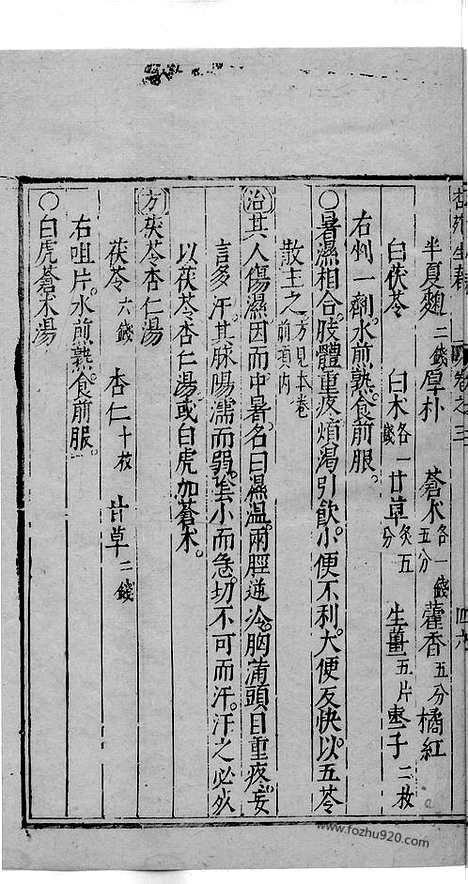 杏苑生春 卷之三 四六
半夏麯二錢 厚朴 蒼朮各一錢五分 藿香五分 橘紅
白茯苓 白朮各一錢 甘草炙五分 生薑五片 棗子二枚
右㕮一劑水煎熟食前服。
○暑濕相合。肢體重疼煩渴引飲。小便不利。大便反快。以五苓
散主之方見本卷前項內
治其人傷濕因而中暑。名曰濕溫。兩脛逆冷。胸滿頭目重疼。妄
言多汗。其脉陽濡而弱。陰小而急。切不可而汗。汗之必死
以茯苓杏仁湯。或白虎加蒼朮。
方茯苓杏仁湯
茯苓六錢 杏仁十枚 甘草二錢
右咀片。水煎熟。食前服。
○白虎蒼朮湯
www.fozhu920.com